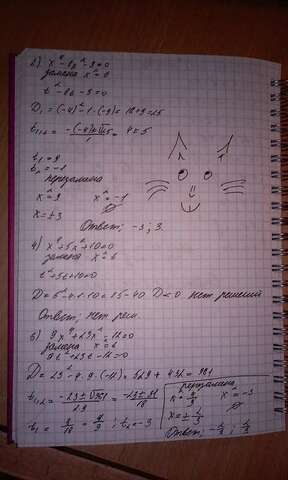 2) x⁴-8x²-9=0
замена x²=t
t²-8t-9=0
D₁=(-4)²-1·(-9)=16+9=25
t₁,₂= -(-4)±√25/1 = 4±5
t₁=9
t₂=-1
перезамена
x²=9 x²=-1
x=±3 ∅
Ответ; -3; 3.
4) x⁴+5x²+10=0
замена x²=t
t²+5t+10=0
D=5²-4·1·10=25-40 D<0 нет решений
Ответ; нет реш.
6) 9x⁴+23x²-12=0
замена x²=t
9t²+23t-12=0
D=23²-4·9·(-12)=529+432=961
t₁,₂= -23±√961/2·9 = -23±31/18
t₁= 8/18 = 4/9; t₂=-3
перезамена
x²=4/9 x²=-3
x=±2/3 ∅
Ответ; -2/3; 2/3